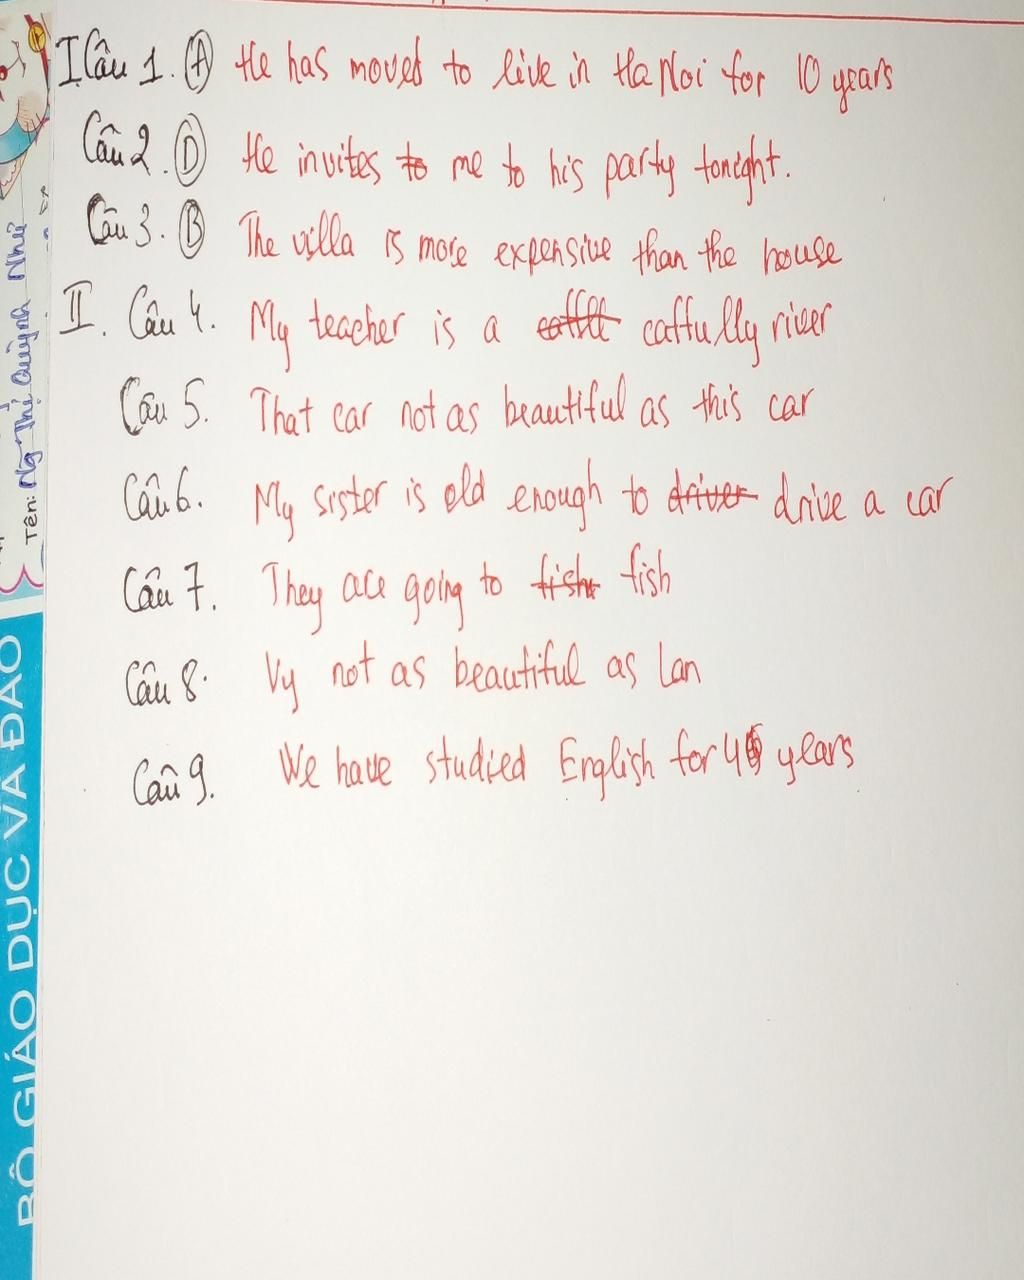 I Câu 1. A He has moved to live in Ha Noi for 10 years
Câu 2. D He invites to me to his party tonight.
Câu 3. B The villa is more expensive than the house
II. Câu 4. My teacher is a caffully river
Câu 5. That car not as beautiful as this car
Câu 6. My sister is old enough to driver drive a car
Câu 7. They are going to fish fish
Câu 8. Vy not as beautiful as Lan
Câu 9. We have studied English for 4 years
Tên: Ng Thị Quỳnh Như
BỘ GIÁO DỤC VÀ ĐÀO